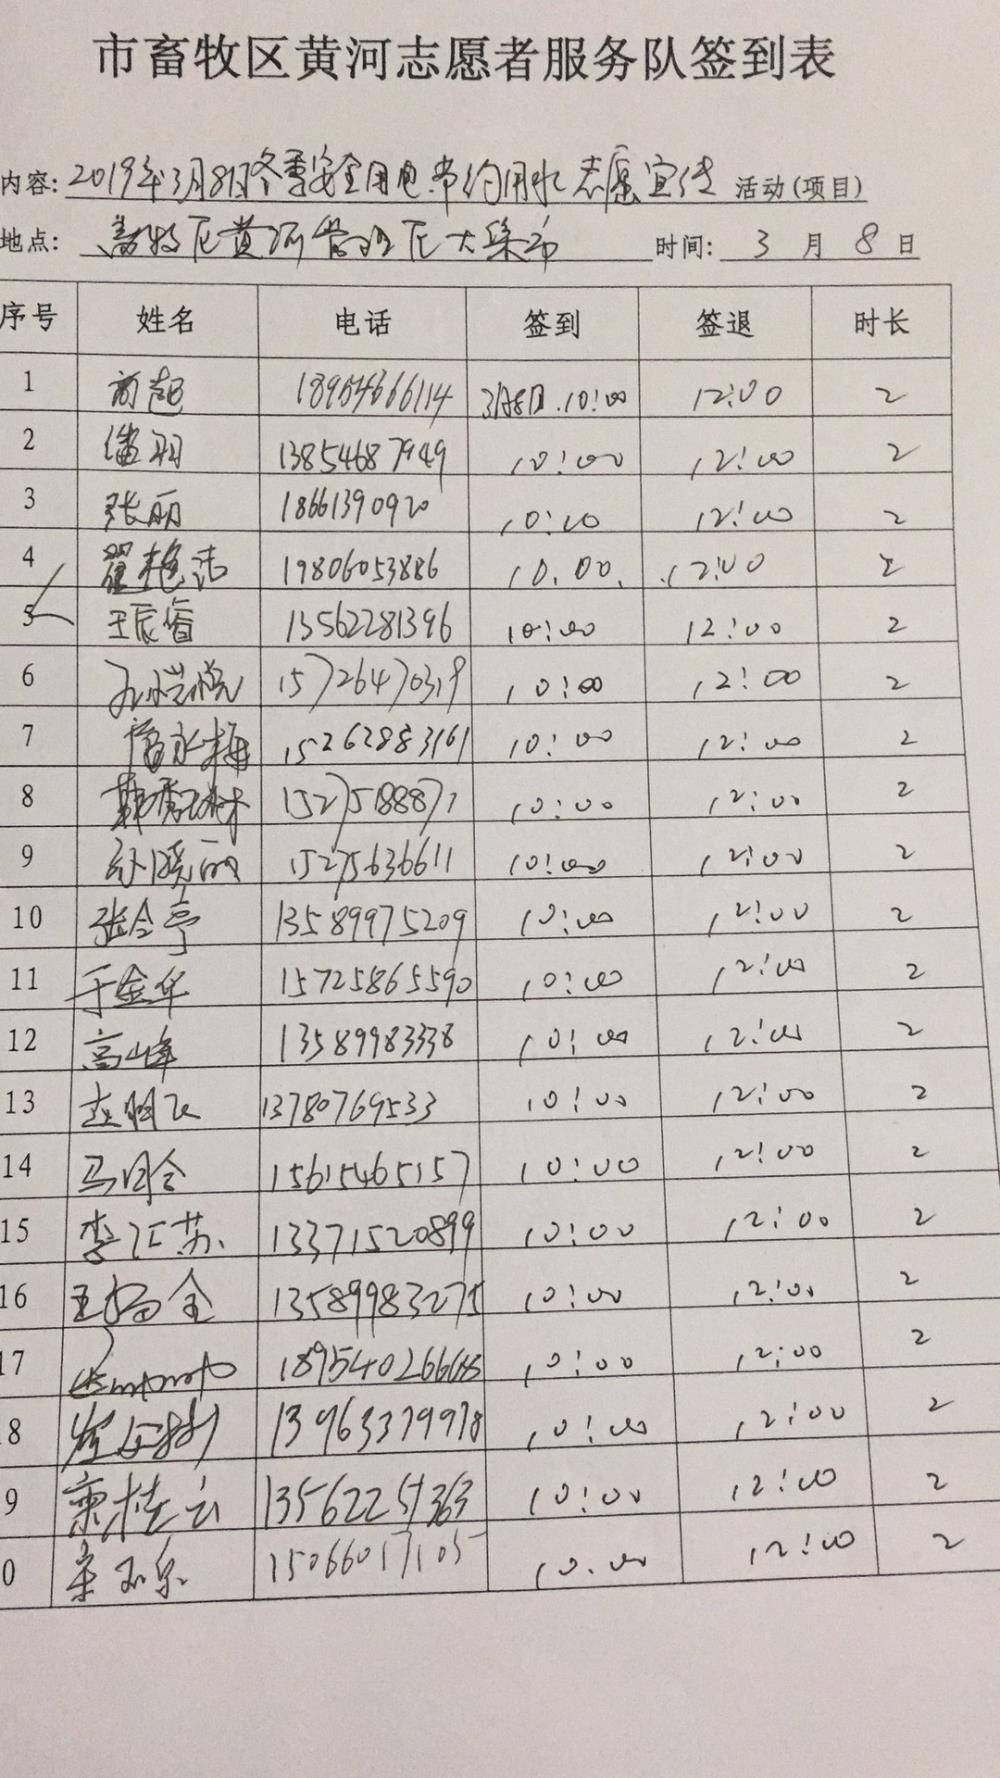 市畜牧区黄河志愿者服务队签到表
内容: 2019年3月8日冬季安全用电节约用水志愿宣传 活动(项目)
地点: 畜牧区黄河管理区大集市 时间: 3 月 8 日
序号 姓名 电话 签到 签退 时长
1 18954666114 3月8日.10:00 12:00 2
2 潘羽 13854687949 10:00 12:00 2
3 张丽 18661390920 10:00 12:00 2
4 翟艳洁 19806053886 10.00. 12:00 2
5 王辰睿 13562281396 10:00 12:00 2
6 15726470319 10:00 12:00 2
7 15262883161 10:00 12:00 2
8 15275188871 10:00 12:00 2
9 孙晓丽 15275636611 10:00 12:00 2
10 张会亭 13589975209 10:00 12:00 2
11 于金华 15725865590 10:00 12:00 2
12 高山峰 13589983338 10:00 12:00 2
13 13780769533 10:00 12:00 2
14 15615465157 10:00 12:00 2
15 李江苏 13371520899 10:00 12:00 2
16 13589983275 10:00 12:00 2
17 10:00 12:00 2
8 13963379978 10:00 12:00 2
9 桂云 10:00 12:00 2
0 15066017105 10:00 12:00 2